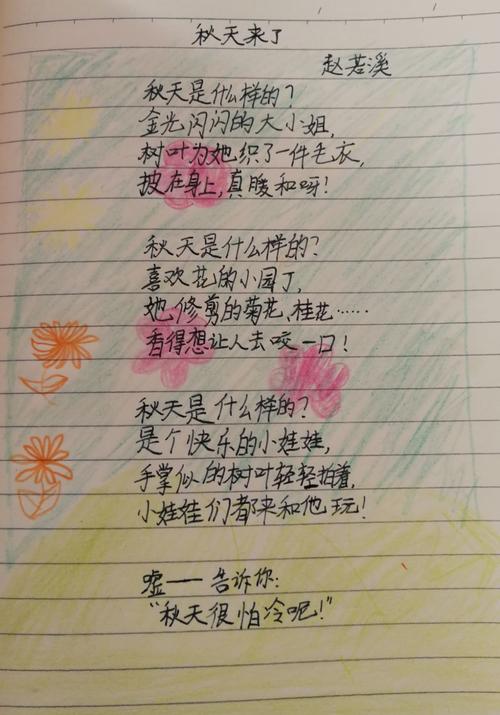 秋天来了
赵若溪
秋天是什么样的?
金光闪闪的大小姐,
树叶为她织了一件毛衣,
披在身上,真暖和呀!
秋天是什么样的?
喜欢花的小园丁,
她修剪的菊花、桂花……
香得想让人去咬一口!
秋天是什么样的?
是个快乐的小娃娃,
手掌似的树叶轻轻拍着,
小娃娃们都来和他玩!
嘘——告诉你:
“秋天很怕冷呢!”